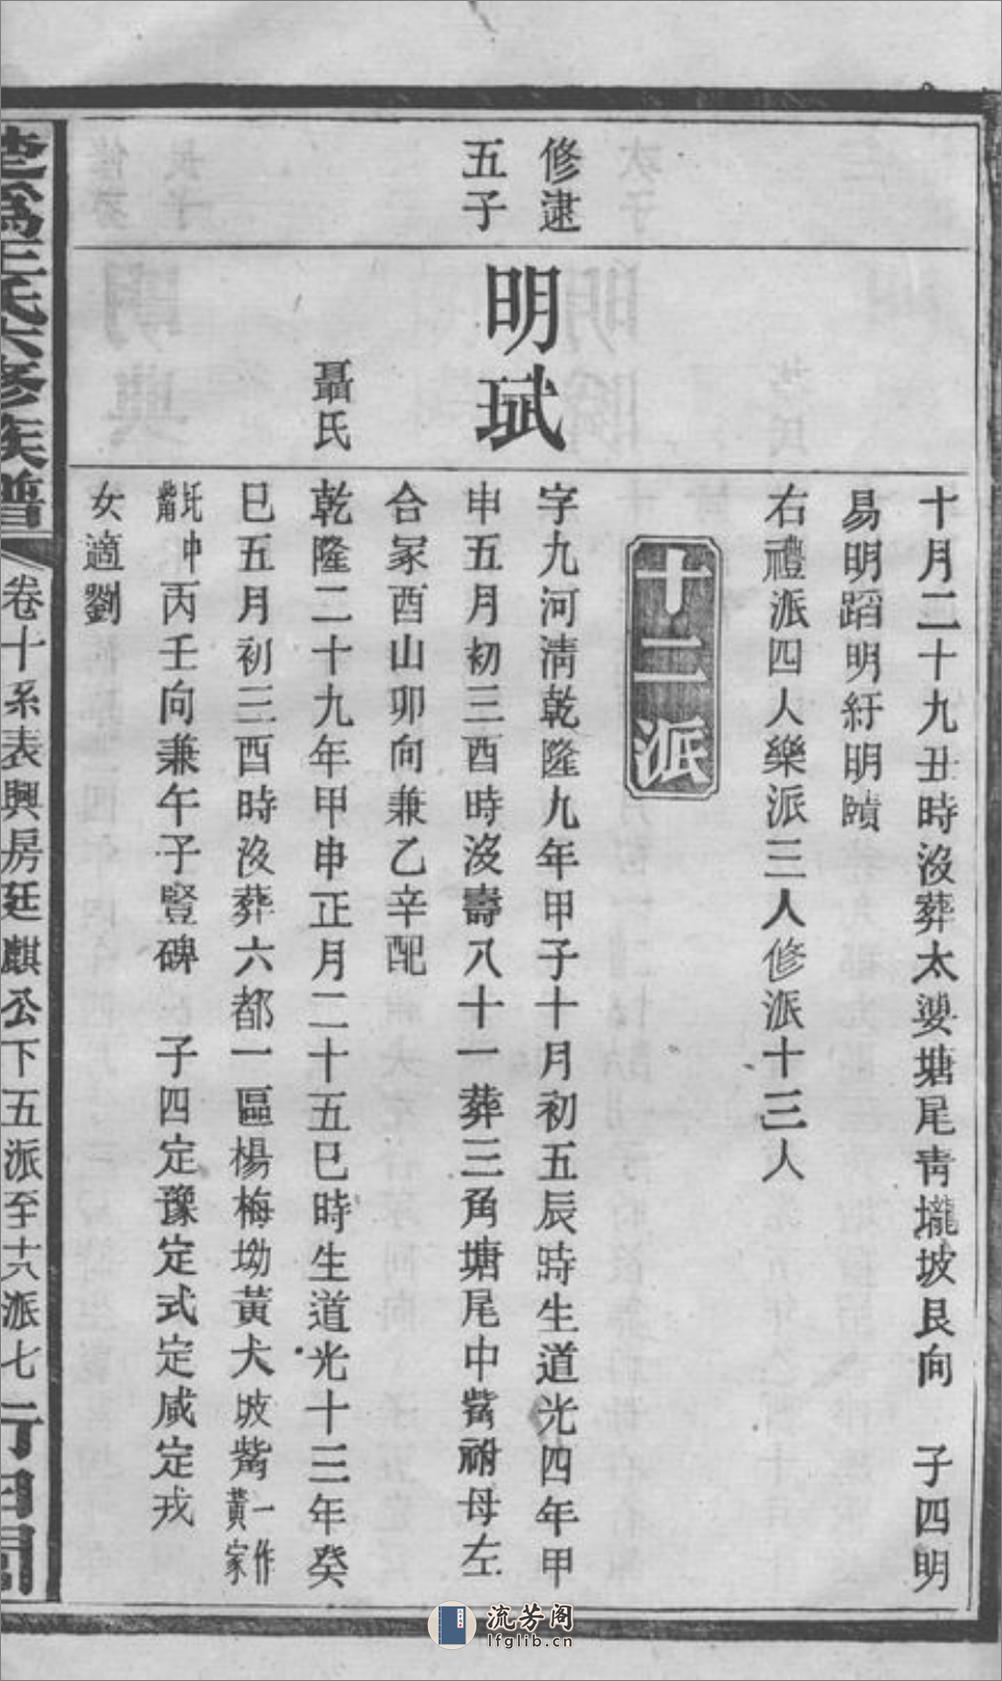 十月二十九丑時沒葬太婆塘尾青壠坡艮向　子四明
易明蹈明紆明賾
右禮派四人樂派三人修派十三人
十二派
修逮
五子
明珷
字九河清乾隆九年甲子十月初五辰時生道光四年甲
申五月初三酉時沒壽八十一葬三角塘尾中觜祔母左
合冢酉山卯向兼乙辛配
聶氏
乾隆二十九年甲申正月二十五巳時生道光十三年癸
巳五月初三酉時沒葬六都一區楊梅坳黃犬坡觜一作黃家
坵中觜丙壬向兼午子豎碑　子四定豫定式定咸定戎
女適劉
王氏六修族譜
卷十系表興房廷麒公下五派至十六派七
流芳阁
lfglib.cn